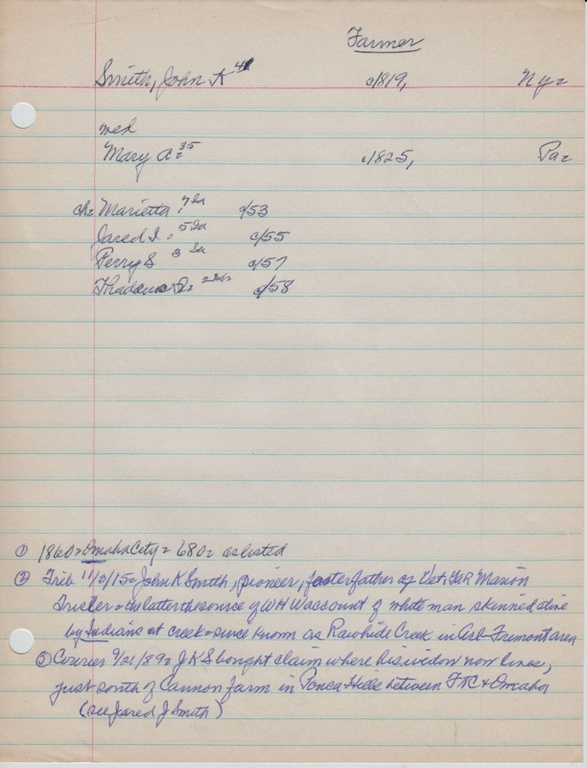 Farmer
Smith, John K 41 c/1819, Ny=
wed
Mary A= 35 c/1825, Pa=
ch= Marietta 7 Ia c/53
Jared I= 5 Ia c/55
Perry S 3 Ia c/57
Thadeus 2 c/58
① 1860= Omaha City= 680= as listed
② Trib 11/2/15= John K Smith, pioneer, foster father of Vet: GAR Marion
= the latter the source of WHW account of white man skinned alive
by Indians at creek= since known as Rawhide Creek in Arb-Fremont area
③ Courier 9/21/89= JKS bought claim where his widow now lives,
just south of Cannon farm in Ponca Hills between FTC & Omaha
(see Jared J Smith)